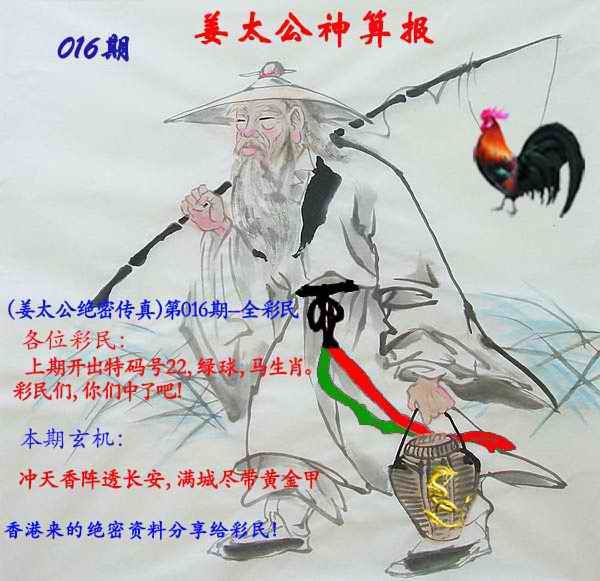 姜太公神算报
016期
(姜太公绝密传真)第016期--全彩民
各位彩民:
上期开出特码号22,绿球,马生肖。
彩民们,你们中了吧!
本期玄机:
冲天香阵透长安,满城尽带黄金甲
香港来的绝密资料分享给彩民!